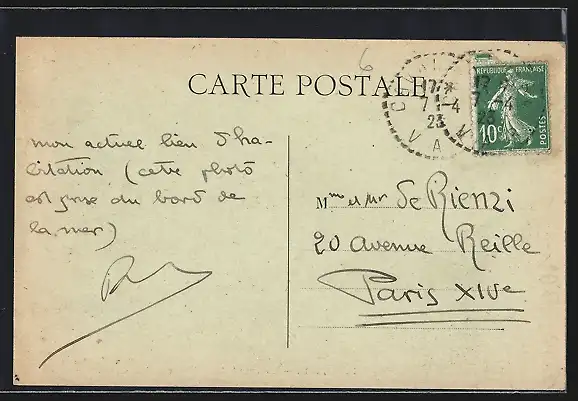 6
CARTE POSTALE
17 *
7 - 4
23
VAN
RÉPUBLIQUE FRANÇAISE
10 c
POSTES
mon actuel lieu d'ha-
bitation (cette photo
est prise du bord de
la mer)
Mme et Mr de Rienzi
20 avenue Reille
Paris XIVe